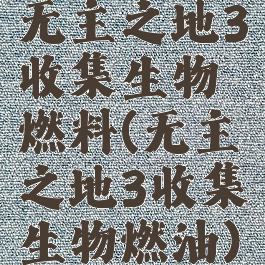 无主之地3
收集生物
燃料(无主
之地3收集
生物燃油)